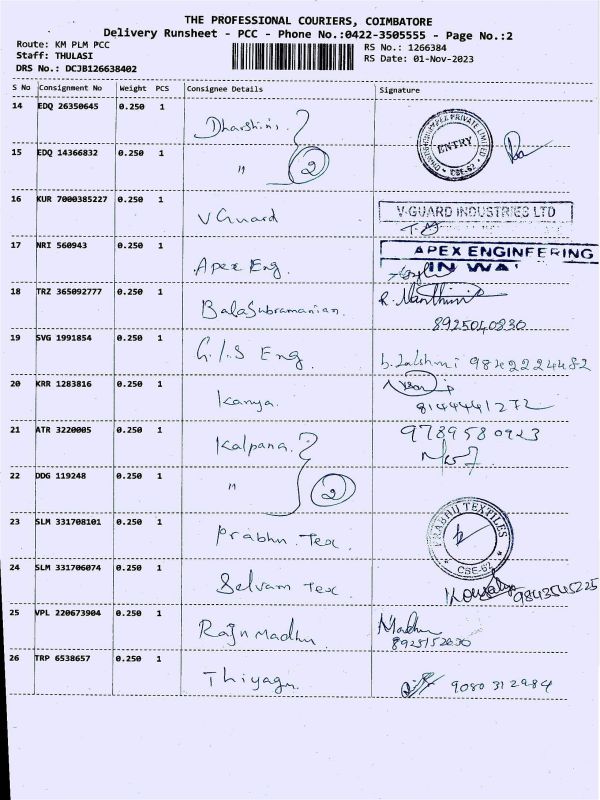 THE PROFESSIONAL COURIERS, COIMBATORE
Delivery Runsheet - PCC - Phone No.:0422-3505555 - Page No.:2
Route: KM PLM PCC
Staff: THULASI
DRS No.: DCJB126638402
RS No.: 1266384
RS Date: 01-Nov-2023
S No Consignment No Weight PCS Consignee Details Signature
14 EDQ 26350645 0.250 1 Dharshini
PRIVATE LIMITED ENTRY CSE-62
15 EDQ 14366832 0.250 1 " 2
16 KUR 7000385227 0.250 1 V Guard V-GUARD INDUSTRIES LTD
17 NRI 560943 0.250 1 Apex Eng. APEX ENGINEERING
18 TRZ 365092777 0.250 1 BalaSubramanian. R.
8925040830
19 SVG 1991854 0.250 1 G.I.S Eng b. Lalshmi 9842224482
20 KRR 1283816 0.250 1 Kanya.
8144441272
21 ATR 3220005 0.250 1 Kalpana. 9789580923
22 DDG 119248 0.250 1 " 2
23 SLM 331708101 0.250 1 Prabhu Tex. PRABHU TEXTILES CSE-62
24 SLM 331706074 0.250 1 Selvam Tex 9843545225
25 VPL 220673904 0.250 1 Rajn Madhu. Madhu
8925152630
26 TRP 6538657 0.250 1 Thiyagu. 9080312984